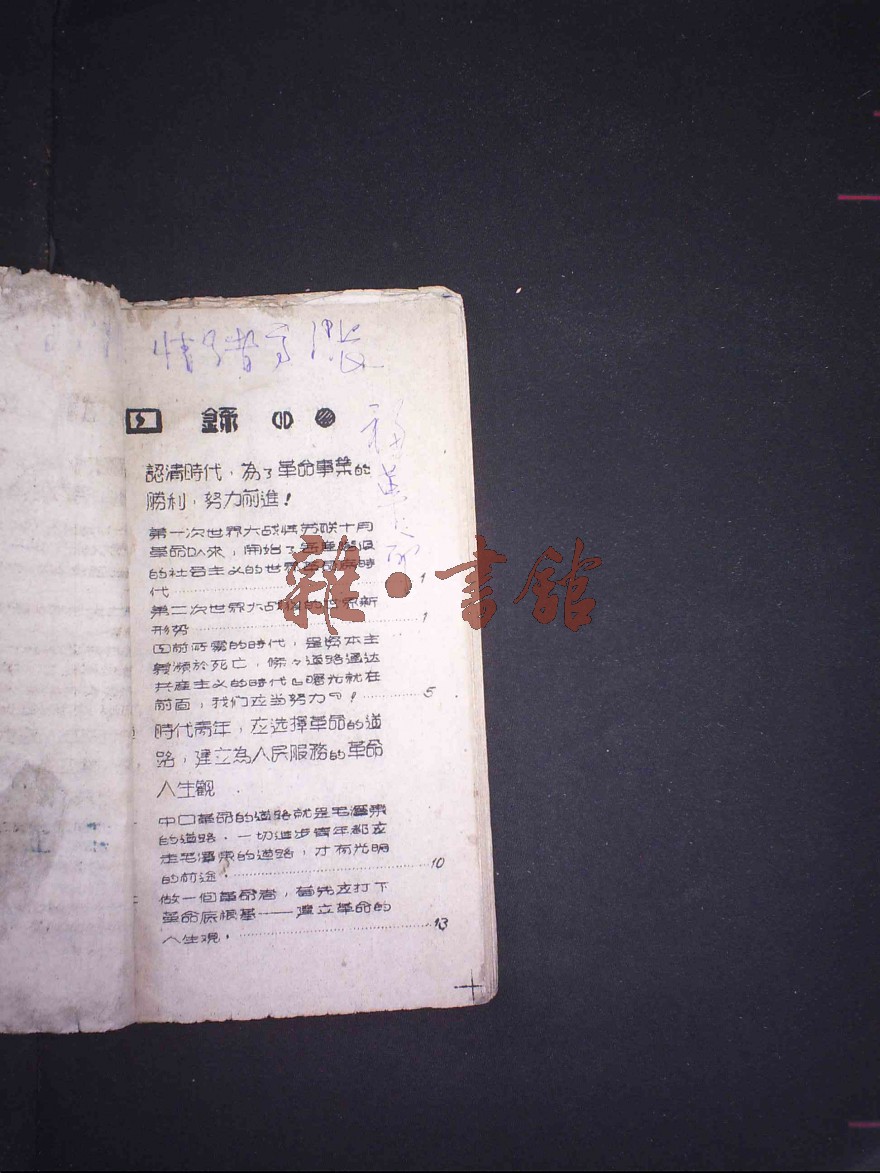 錄
認清時代，為了革命事業的
勝利，努力前進！
第一次世界大战與苏联十月
革命以來，開始了
的社会主义的世界革命
代 1
第二次世界大战後的世界新
形势 1
目前所處的時代，是資本主
義瀕於死亡，條々道路通达
共產主义的時代，曙光就在
前面，我们应当努力！ 5
時代青年，应选擇革命的道
路，建立為人民服務的革命
人生觀
中囗革命的道路就是毛澤東
的道路．一切進步青年都应
走毛澤東的道路，才有光明
的前途． 10
做一個革命者，首先应打下
革命底根基——建立革命的
人生观． 13
雜·書館